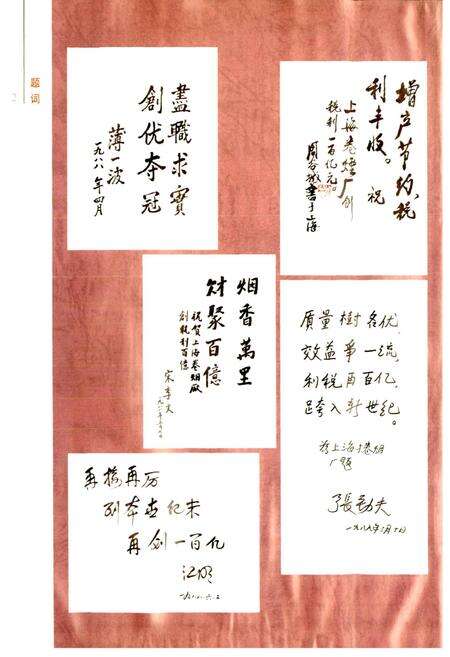 题词
2
盡職求實
創优夺冠
薄一波
一九八八年四月
增产节约、税
利丰收。祝
上海卷烟厂创
税利一百亿元。
周谷城書于上海
烟香萬里
財聚百億
祝贺上海卷烟厰
創税利百億
宋季文
质量樹名优,
效益争一流,
利税百百亿,
跨入新世纪。
为上海卷烟
厂题
張劲夫
再接再厉
到本世纪末
再创一百亿
汪明